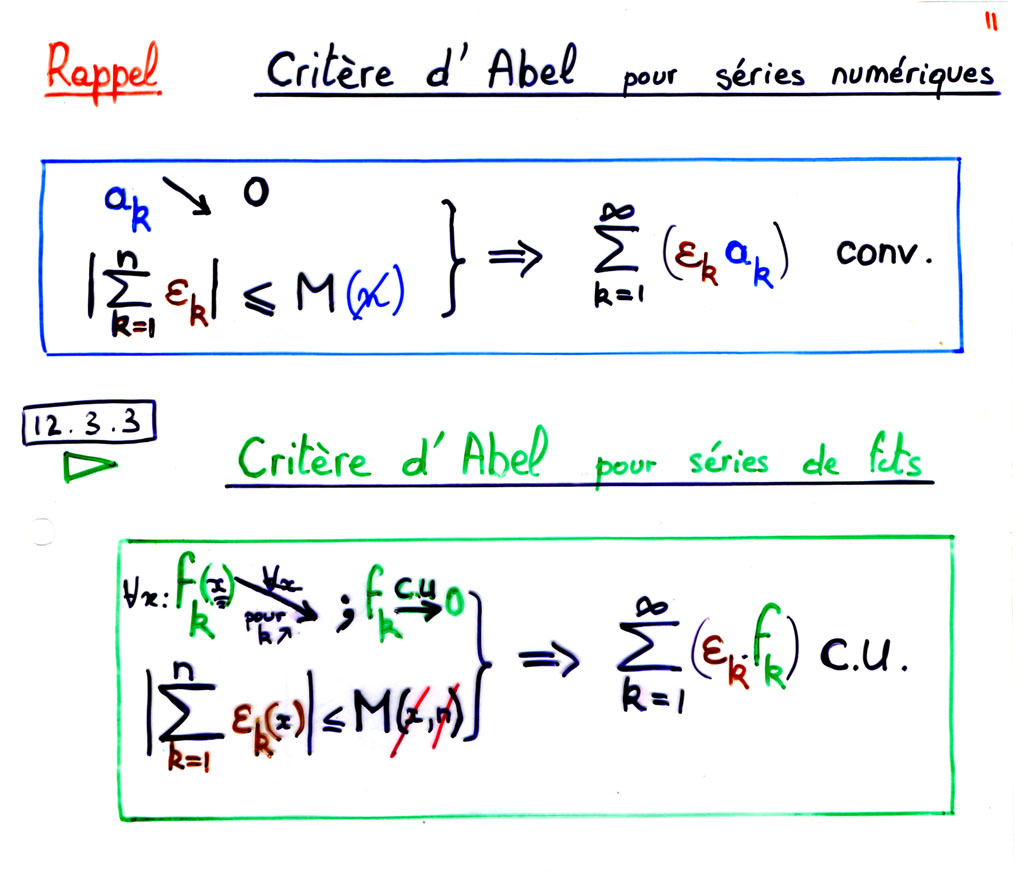 11
Rappel Critère d'Abel pour séries numériques
a_k ↘ 0
|∑_{k=1}^{n} ε_k| ≤ M(n̸) } ⇒ ∑_{k=1}^{∞} (ε_k a_k) conv.
12.3.3
▷ Critère d'Abel pour séries de fcts
∀x: f_k(x) ↘ ∀x pour k↗ ; f_k →^{c.u} 0
|∑_{k=1}^{n} ε_k(x)| ≤ M(x̸, n̸) } ⇒ ∑_{k=1}^{∞} (ε_k·f_k) c.u.